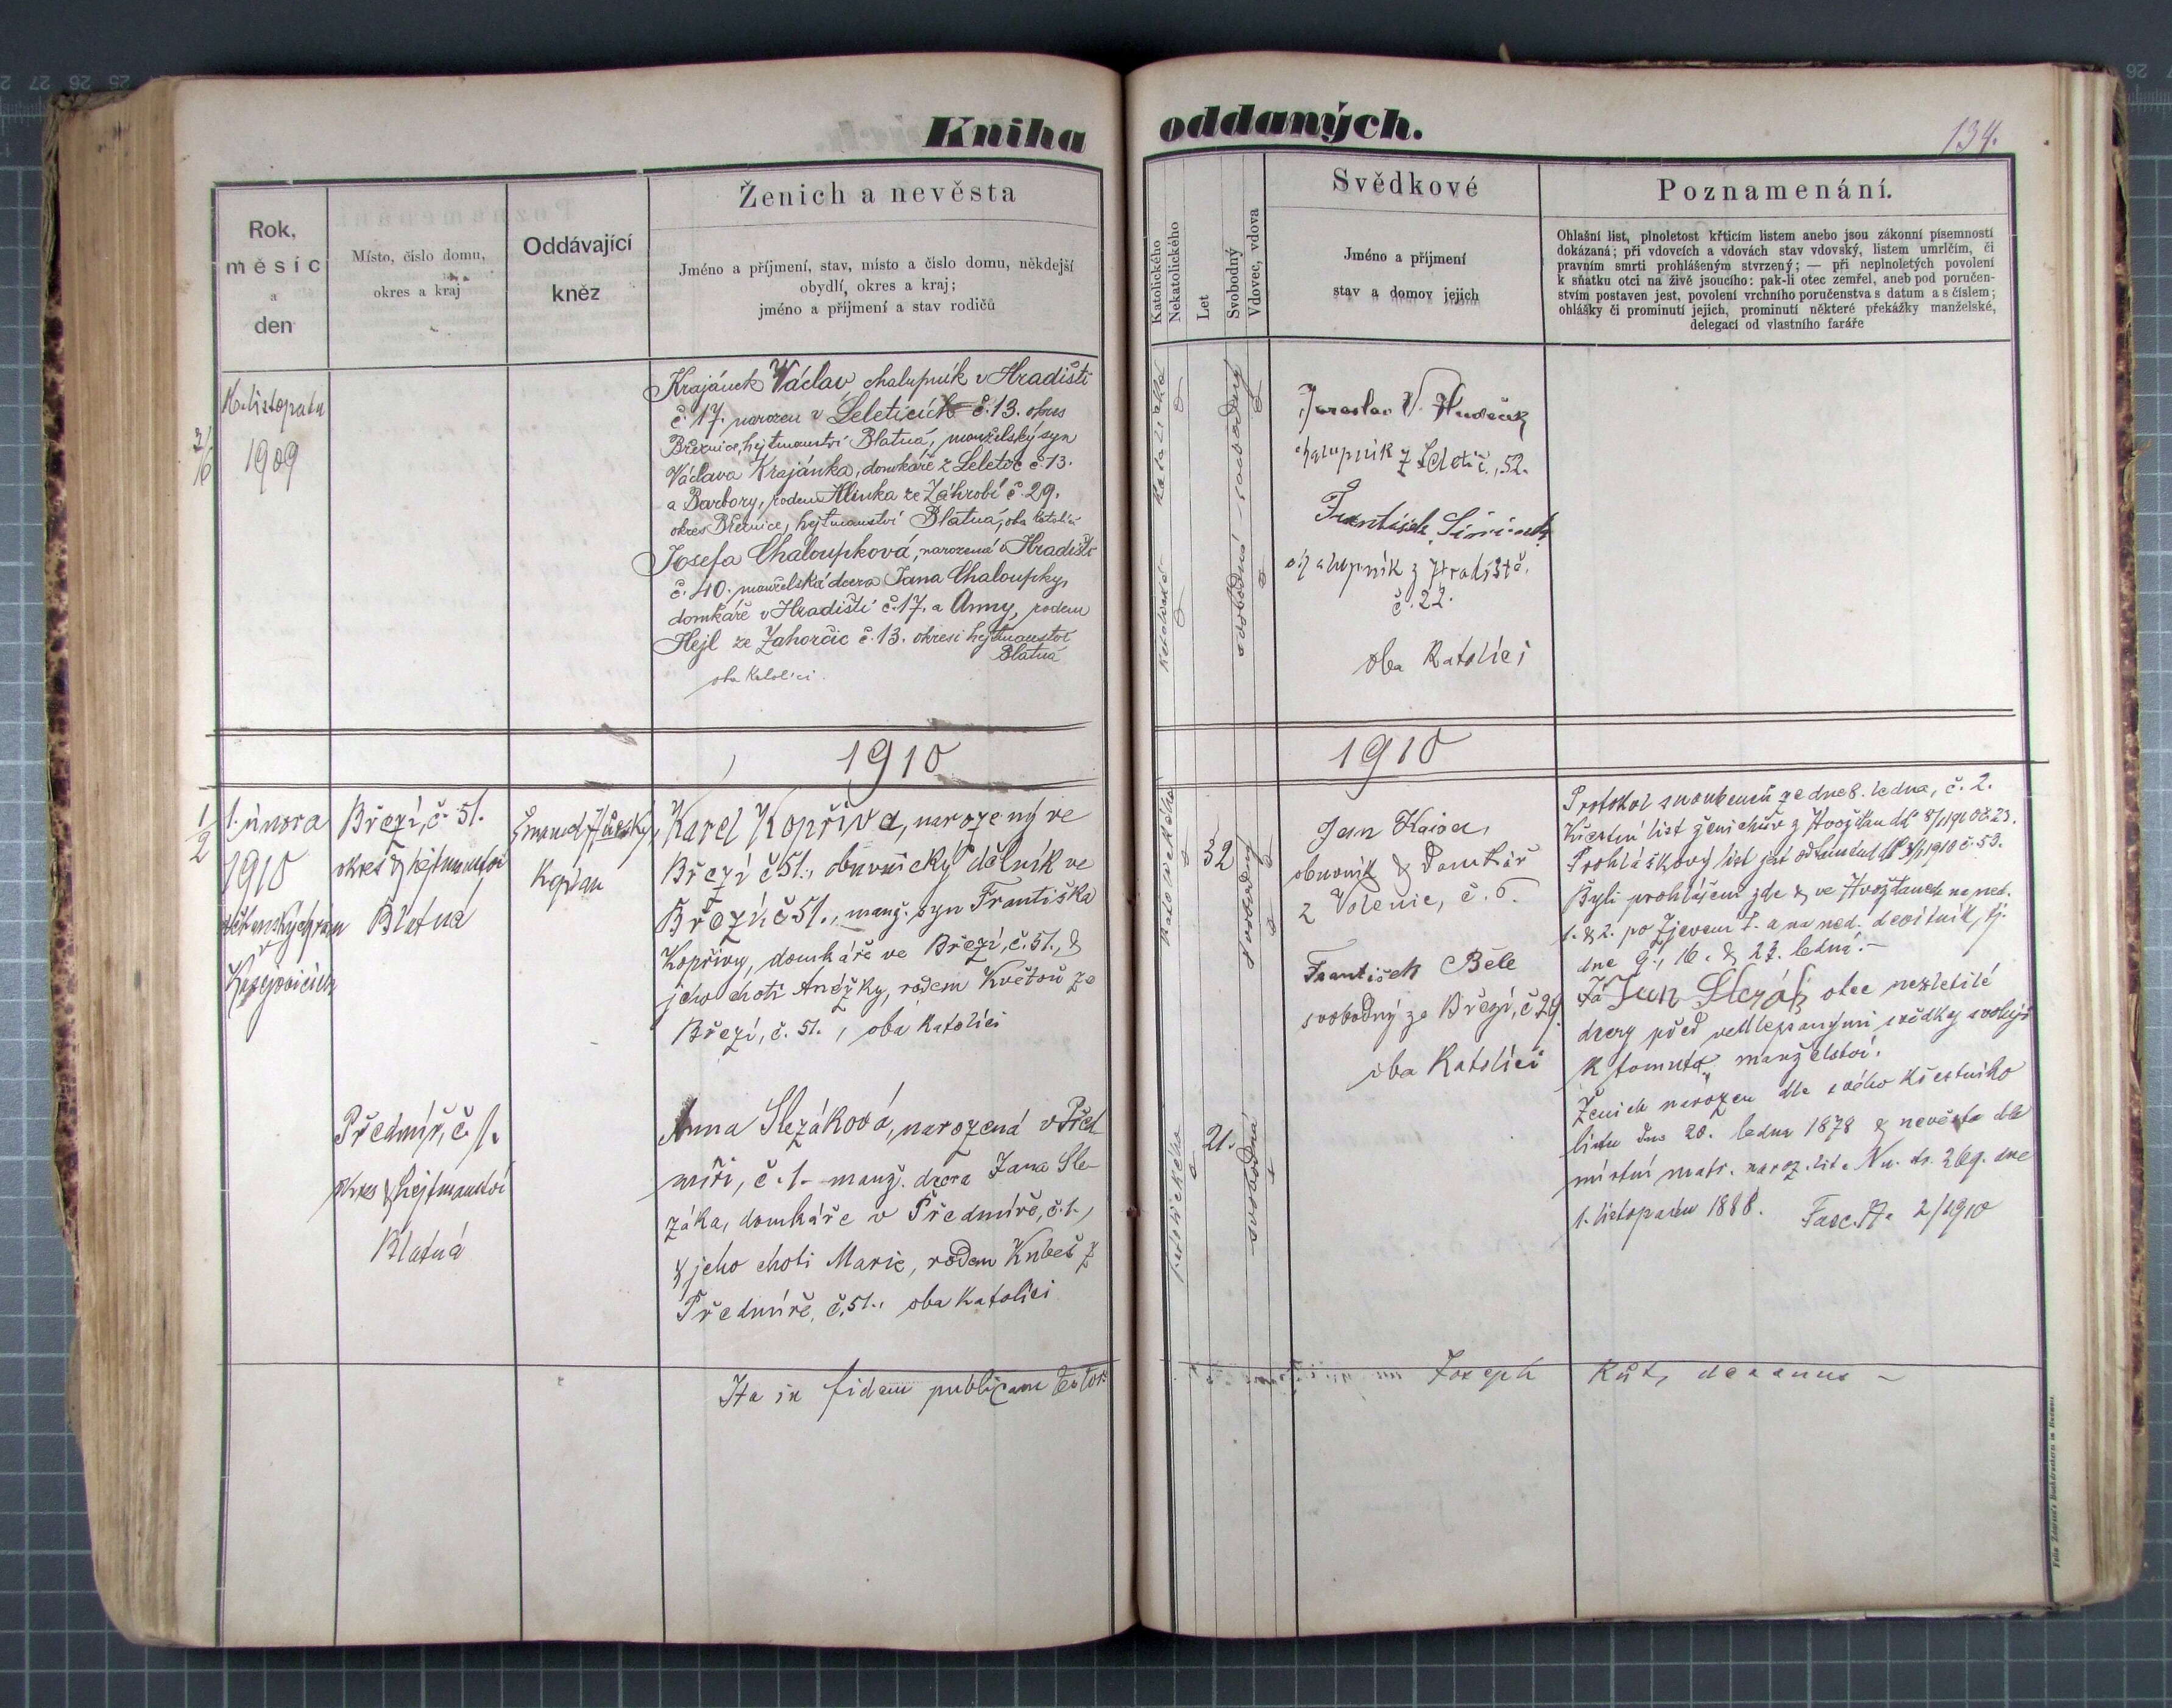 Kniha oddaných.
134.
Rok,
měsíc
a
den
Místo, číslo domu,
okres a kraj
Oddávající
kněz
Ženich a nevěsta
Jméno a příjmení, stav, místo a číslo domu, někdejší
obydlí, okres a kraj;
jméno a příjmení a stav rodičů
Katolického
Nekatolického
Let
Svobodný
Vdovec, vdova
Svědkové
Jméno a příjmení
stav a domov jejich
Poznamenání.
Ohlašní list, plnoletost křticím listem anebo jsou zákonní písemností
dokázaná; při vdovcích a vdovách stav vdovský, listem umrlčím, či
pravním smrti prohlášeným stvrzený; — při neplnoletých povolení
k sňatku otci na živě jsoucího: pak-li otec zemřel, aneb pod poručen-
stvím postaven jest, povolení vrchního poručenstva s datum a s číslem;
ohlášky či prominutí jejich, prominutí některé překážky manželské,
delegací od vlastního faráře
listopadu
1909
Krajánek Václav chalupník v Hradišti
č. 17. narozen v Leleticích č. 13. okres
Březnice, hejtmanství Blatná, manželský syn
Václava Krajánka, domkáře z Leletic č. 13.
a Barbory, rodem Hlinka ze Záhrobí č. 29.
okres Březnice, hejtmanství Blatná, oba katolíci
Josefa Chaloupková, narozená v Hradišti
č. 40. manželská dcera Jana Chaloupky,
domkáře v Hradišti č. 17. a Anny, rodem
Hejl ze Zahorčic č. 13. okres i hejtmanství
Blatná
oba katolíci.
svobodný
svobodná
Jaroslav V.
chalupník z Leletic č., 52.
František
chalupník z Hradiště,
č. 22.
oba Katolíci
1910
1910
1/2
1. února
1910
Březí, č. 51.
okres & hejtmanství
Blatná
Kaplan
Karel Kopřiva, narozený ve
Březí č 51., obuvnický dělník ve
Březí, č 51., manž. syn Františka
Kopřivy, domkáře ve Březí, č. 51., &
jeho choti Anežky, rodem Květoň ze
Březí, č. 51., oba katolíci
katolického
32
svobodný
Jan Kaiser,
obuvník & domkář
z Volenic, č. 6.
František Bele
svobodný ze Březí, č 29.
oba Katolíci
Protokol snoubenců ze dne 8. ledna, č. 2.
Křestní list ženichův z Hvožďan dto 8/1 1910 č. 23.
Prohláškový list 1910 č. 53.
Byli prohlášeni zde & ve Hvožďanech na ned.
1. & 2. po Zjevení P. a na ned. devítník, tj.
dne 9., 16. & 23. ledna.—
Já Jan Slezák, otec nezletilé
dcery před vedlepsanými svědky svoluji
k tomuto manželství.
Ženich narozen dle svého křestního
listu dne 20. ledna 1878 & nevěsta dle
místní matr. naroz. lit. N. str. 269. dne
1. listopadu 1888. Fasc. A. 2/1910
Předmíř, č. 1.
okres & hejtmanství
Blatná
Anna Slezáková, narozená v Před-
míři, č. 1. manž. dcera Jana Sle-
záka, domkáře v Předmíři, č. 1.,
& jeho choti Marie, rodem Kubeš z
Předmíře, č. 51., oba katolíci
katolického
21.
svobodná
Ita in fidem publicam testor
Joseph Kůt, decanus